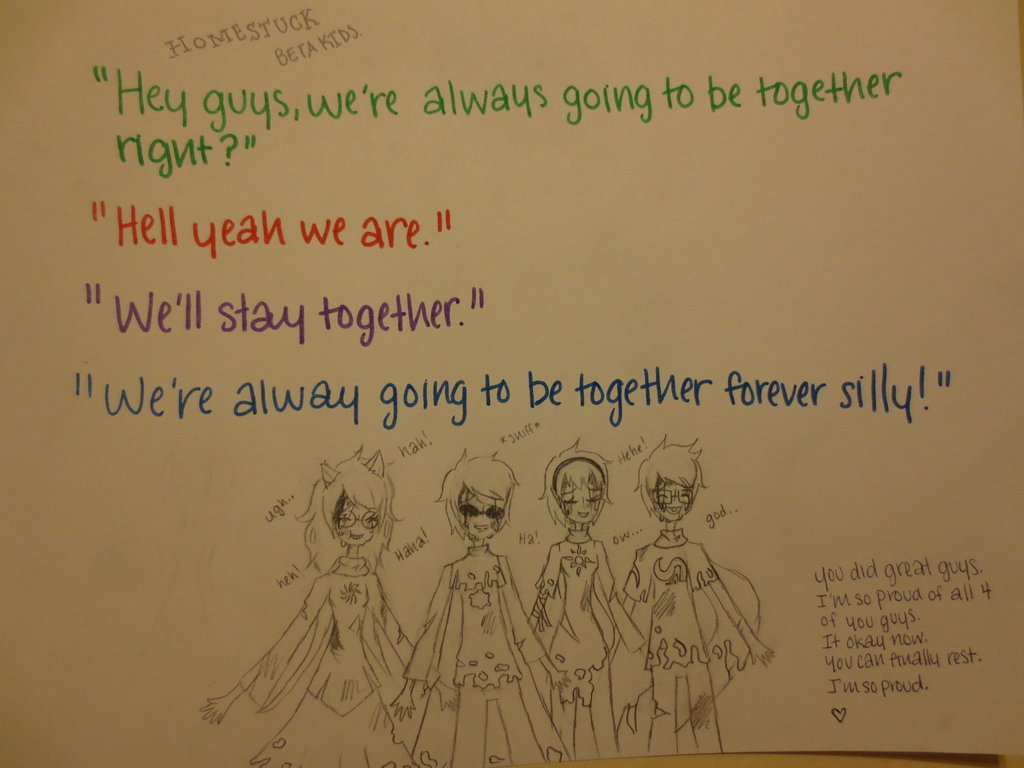 HOMESTUCK
BETA KIDS.
"Hey guys, we're always going to be together
right?"
"Hell yeah we are."
"We'll stay together."
"We're alway going to be together forever silly!"
hah!
*sniff*
Hehe!
ugh..
Haha!
Ha!
ow...
god...
heh!
you did great guys.
I'm so proud of all 4
of you guys.
It okay now.
you can finally rest.
I'm so proud.
♡